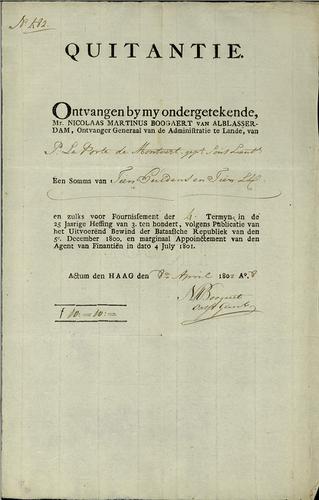 No. 182.
QUITANTIE.
Ontvangen by my ondergetekende,
Mr. NICOLAAS MARTINUS BOOGAERT VAN ALBLASSER-
DAM, Ontvanger Generaal van de Administratie te Lande, van
P. La Porte de
Een Somms van Tien Guldens en Tien
en zulks voor Fournissement der 4. Termyn in de
25 Jaarige Heffing van 3. ten hondert, volgens Publicatie van
het Uitvoerend Bewind der Bataafsche Republiek van den
5e. December 1800, en marginal Appoinctement van den
Agent van Finantiën in dato 4 July 1801.
Actum den HAAG den 8 April 1802 Ao. 8
ƒ 10:-10:-